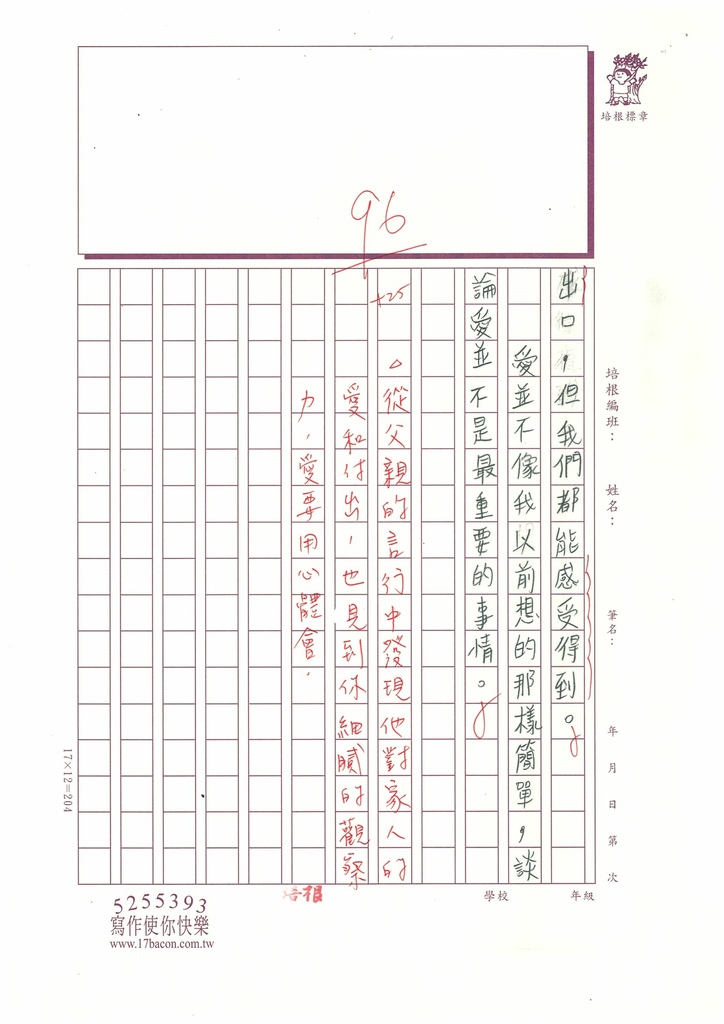 培根標章
96
培根編班：
姓名：
筆名：
年 月 日 第 次
出口，但我們都能感受得到。
愛並不像我以前想的那樣簡單，談
論愛並不是最重要的事情。
+25
。從父親的言行中發現他對家人的
愛和付出，也見到你細膩的觀察
力，愛要用心體會。
17×12=204
年級
學校
培根
5255393
寫作使你快樂
www.17bacon.com.tw